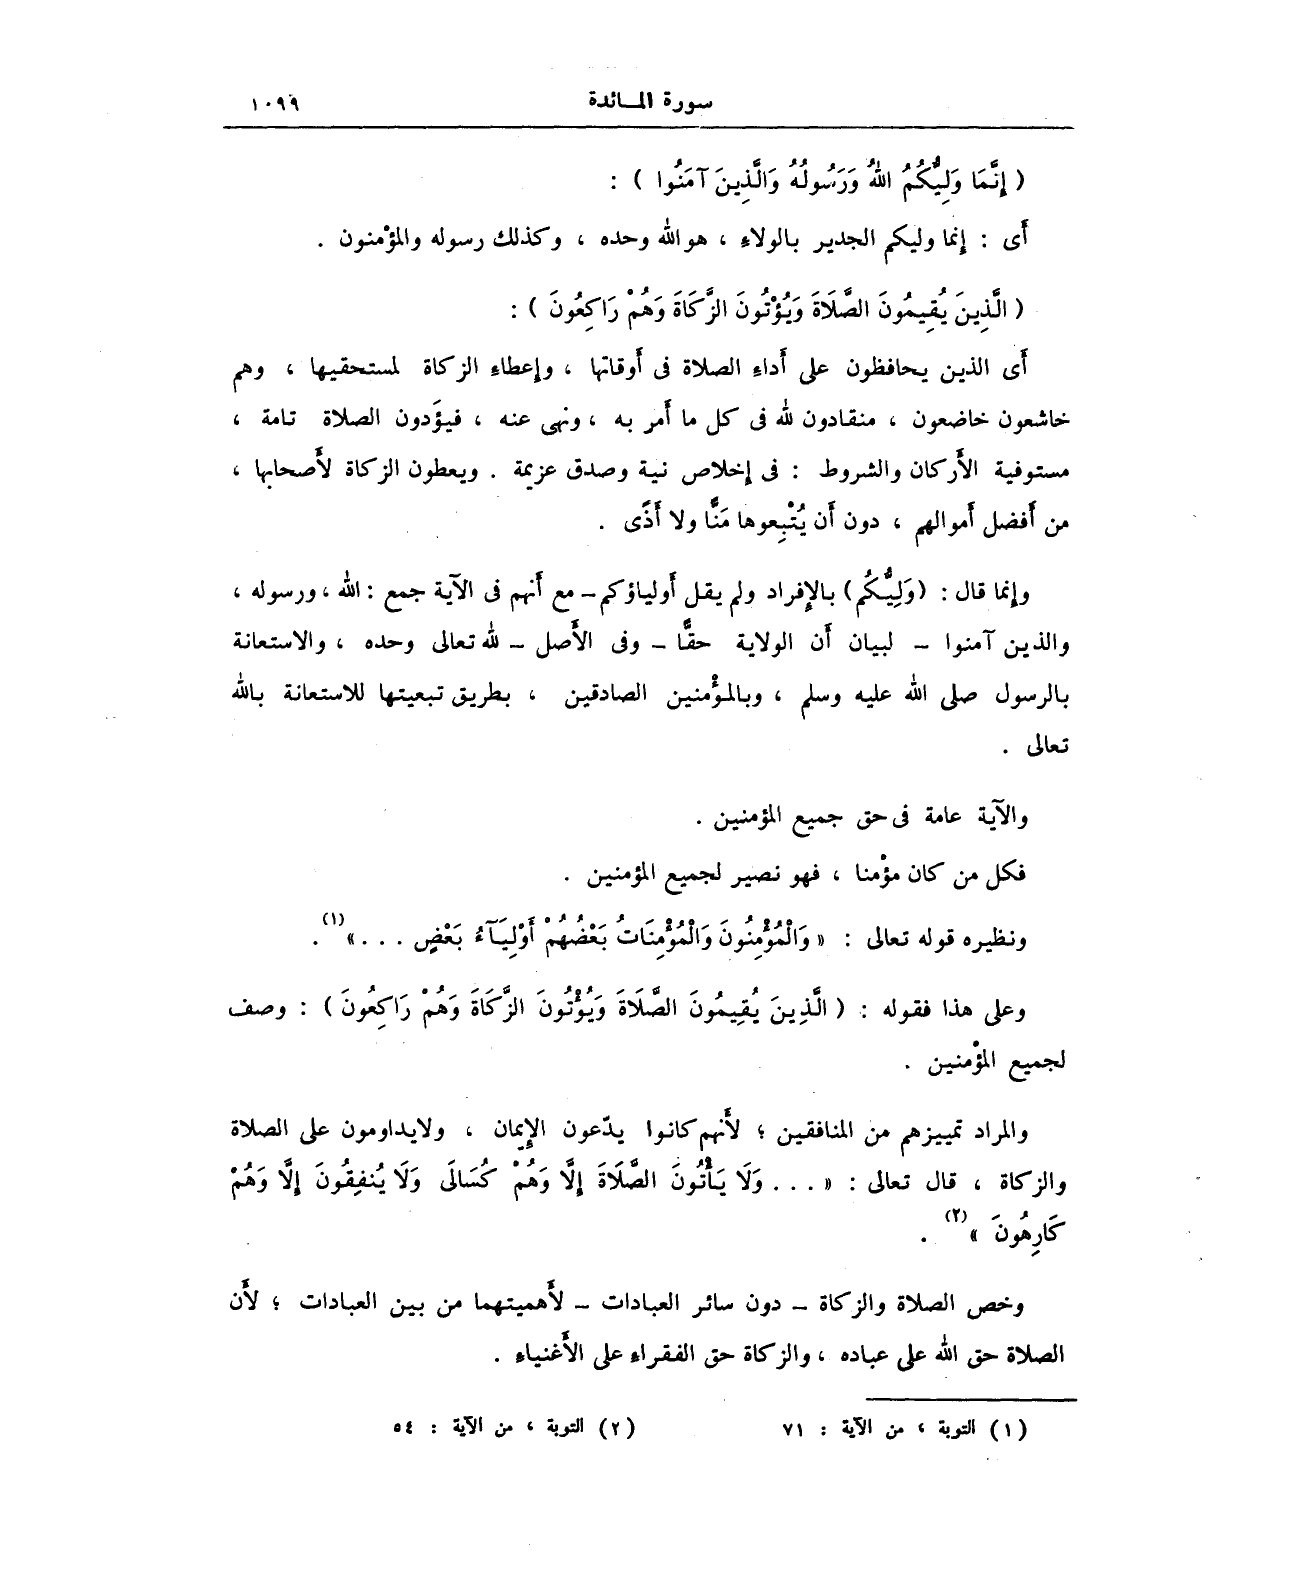 سورة المائدة ١٠٩٩
( إِنَّمَا وَلِيُّكُمُ اللهُ وَرَسُولُهُ وَالَّذِينَ آمَنُوا ) :
أَى : إِنما وليكم الجدير بالولاءِ ، هو الله وحده ، وكذلك رسوله والمؤْمنون .
( الَّذِينَ يُقِيمُونَ الصَّلَاةَ وَيُؤْتُونَ الزَّكَاةَ وَهُمْ رَاكِعُونَ ) :
أَى الذين يحافظون على أَداءِ الصلاة فى أَوقاتها ، وإِعطاءِ الزكاة لمستحقيها ، وهم
خاشعون خاضعون ، منقادون لله فى كل ما أَمر به ، ونهى عنه ، فيؤَدون الصلاة تامة ،
مستوفية الأَركان والشروط : فى إِخلاص نية وصدق عزيمة . ويعطون الزكاة لأَصحابها ،
من أَفضل أَموالهم ، دون أَن يُتْبِعوها مَنًّا ولا أَذًى .
وإِنما قال : (وَلِيُّكُم) بالإِفراد ولم يقل أَولياؤكم – مع أَنهم فى الآية جمع : الله ، ورسوله ،
والذين آمنوا – لبيان أَن الولاية حقًّا – وفى الأَصل – لله تعالى وحده ، والاستعانة
بالرسول صلى الله عليه وسلم ، وبالمؤْمنين الصادقين ، بطريق تبعيتها للاستعانة بالله
تعالى .
والآية عامة فى حق جميع المؤمنين .
فكل من كان مؤْمنا ، فهو نصير لجميع المؤمنين .
ونظيره قوله تعالى : « وَالْمُؤْمِنُونَ وَالْمُؤْمِنَاتُ بَعْضُهُمْ أَوْلِيَآءُ بَعْضٍ . . . »(١) .
وعلى هذا فقوله : ( الَّذِينَ يُقِيمُونَ الصَّلَاةَ وَيُؤْتُونَ الزَّكَاةَ وَهُمْ رَاكِعُونَ ) : وصف
لجميع المؤْمنين .
والمراد تمييزهم من المنافقين ؛ لأَنهم كانوا يدّعون الإِيمان ، ولا يداومون على الصلاة
والزكاة ، قال تعالى : « . . . وَلَا يَأْتُونَ الصَّلَاةَ إِلَّا وَهُمْ كُسَالَى وَلَا يُنفِقُونَ إِلَّا وَهُمْ
كَارِهُونَ »(٢) .
وخص الصلاة والزكاة – دون سائر العبادات – لأَهميتهما من بين العبادات ؛ لأَن
الصلاة حق الله على عباده ، والزكاة حق الفقراء على الأَغنياءِ .
(١) التوبة ، من الآية : ٧١ (٢) التوبة ، من الآية : ٥٤